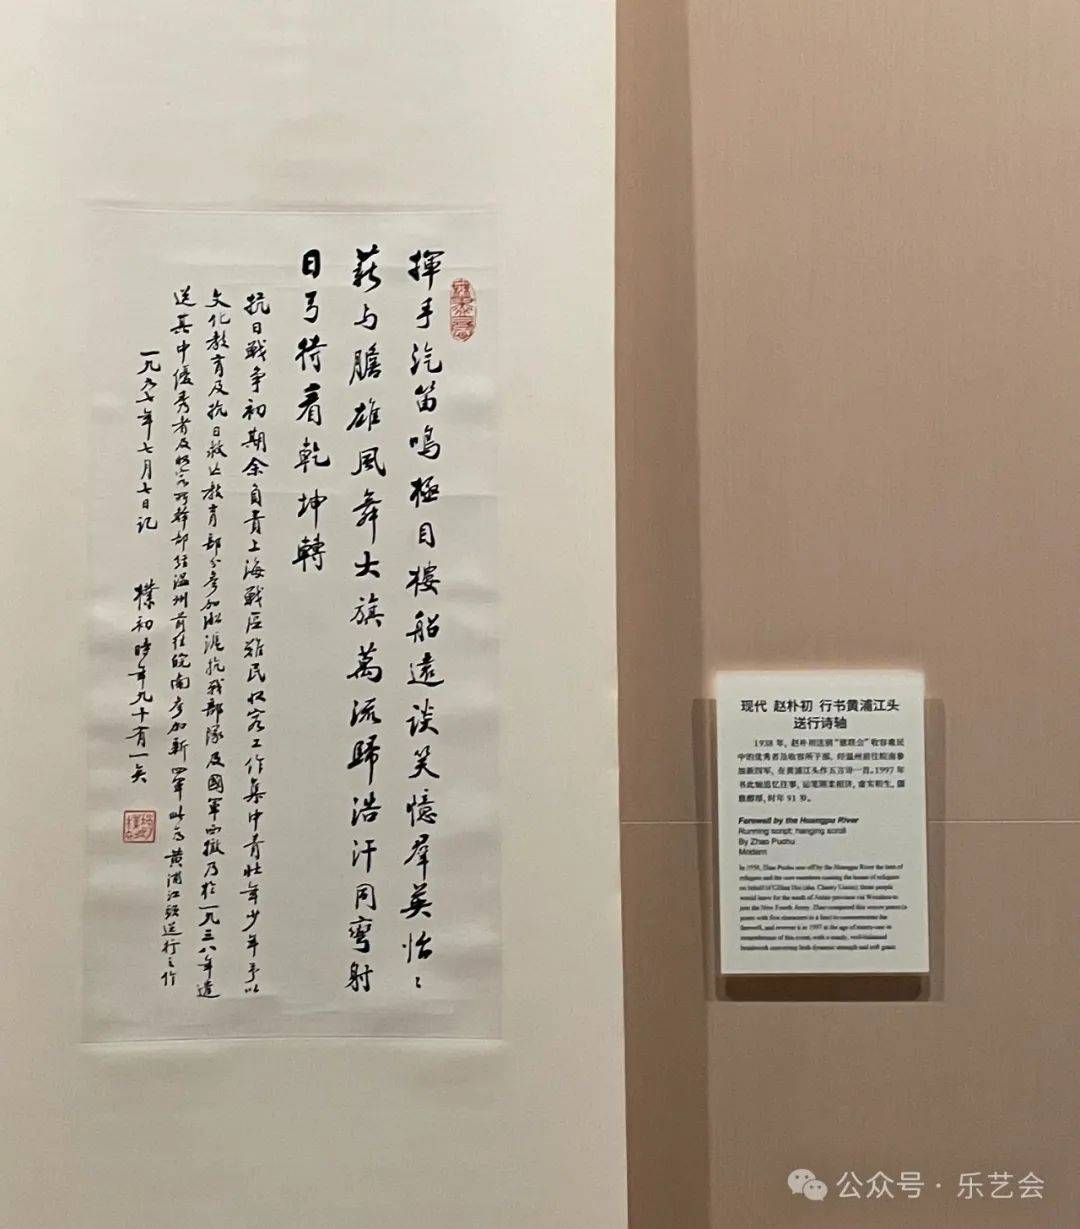 揮手汽笛鳴極目樓船遠談笑憶羣英怡〻
薪与膽雄風舞大旗萬流歸浩汗同彎射
日弓待看乾坤轉
抗日戰争初期余負責上海戰區難民收容工作集中青壯年少年予以
文化教育及抗日救亡教育部分參加淞滬抗戰部隊及國軍西撤乃於一九三八年遣
送其中優秀者及收容所幹部經温州前往皖南参加新四軍此為黄浦江頭送行之作
一九九七年七月七日記 樸初時年九十有一矣
现代 赵朴初 行书黄浦江头
送行诗轴
1938 年，赵朴初送别“慈联会”收容难民
中的优秀者及收容所干部，经温州前往皖南参
加新四军，在黄浦江头作五言诗一首。1997 年
书此轴追忆往事，运笔刚柔相济，虚实相生，儒
雅醇厚，时年 91 岁。
Farewell by the Huangpu River
Running script; hanging scroll
By Zhao Puchu
Modern
In 1938, Zhao Puchu saw off by the Huangpu River the best of
refugees and the core members running the house of refugees
on behalf of Cilian Hui (aka. Charity Union); those people
would leave for the south of Anhui province via Wenzhou to
join the New Fourth Army. Zhao composed this
poem with five characters in a line) to commemorate the
farewell, and rewrote it in 1997 at the age of ninety-one in
remembrance of this event, with a steady, well-balanced
brushwork conveying both dynamic strength and soft grace.
公众号 · 乐艺会